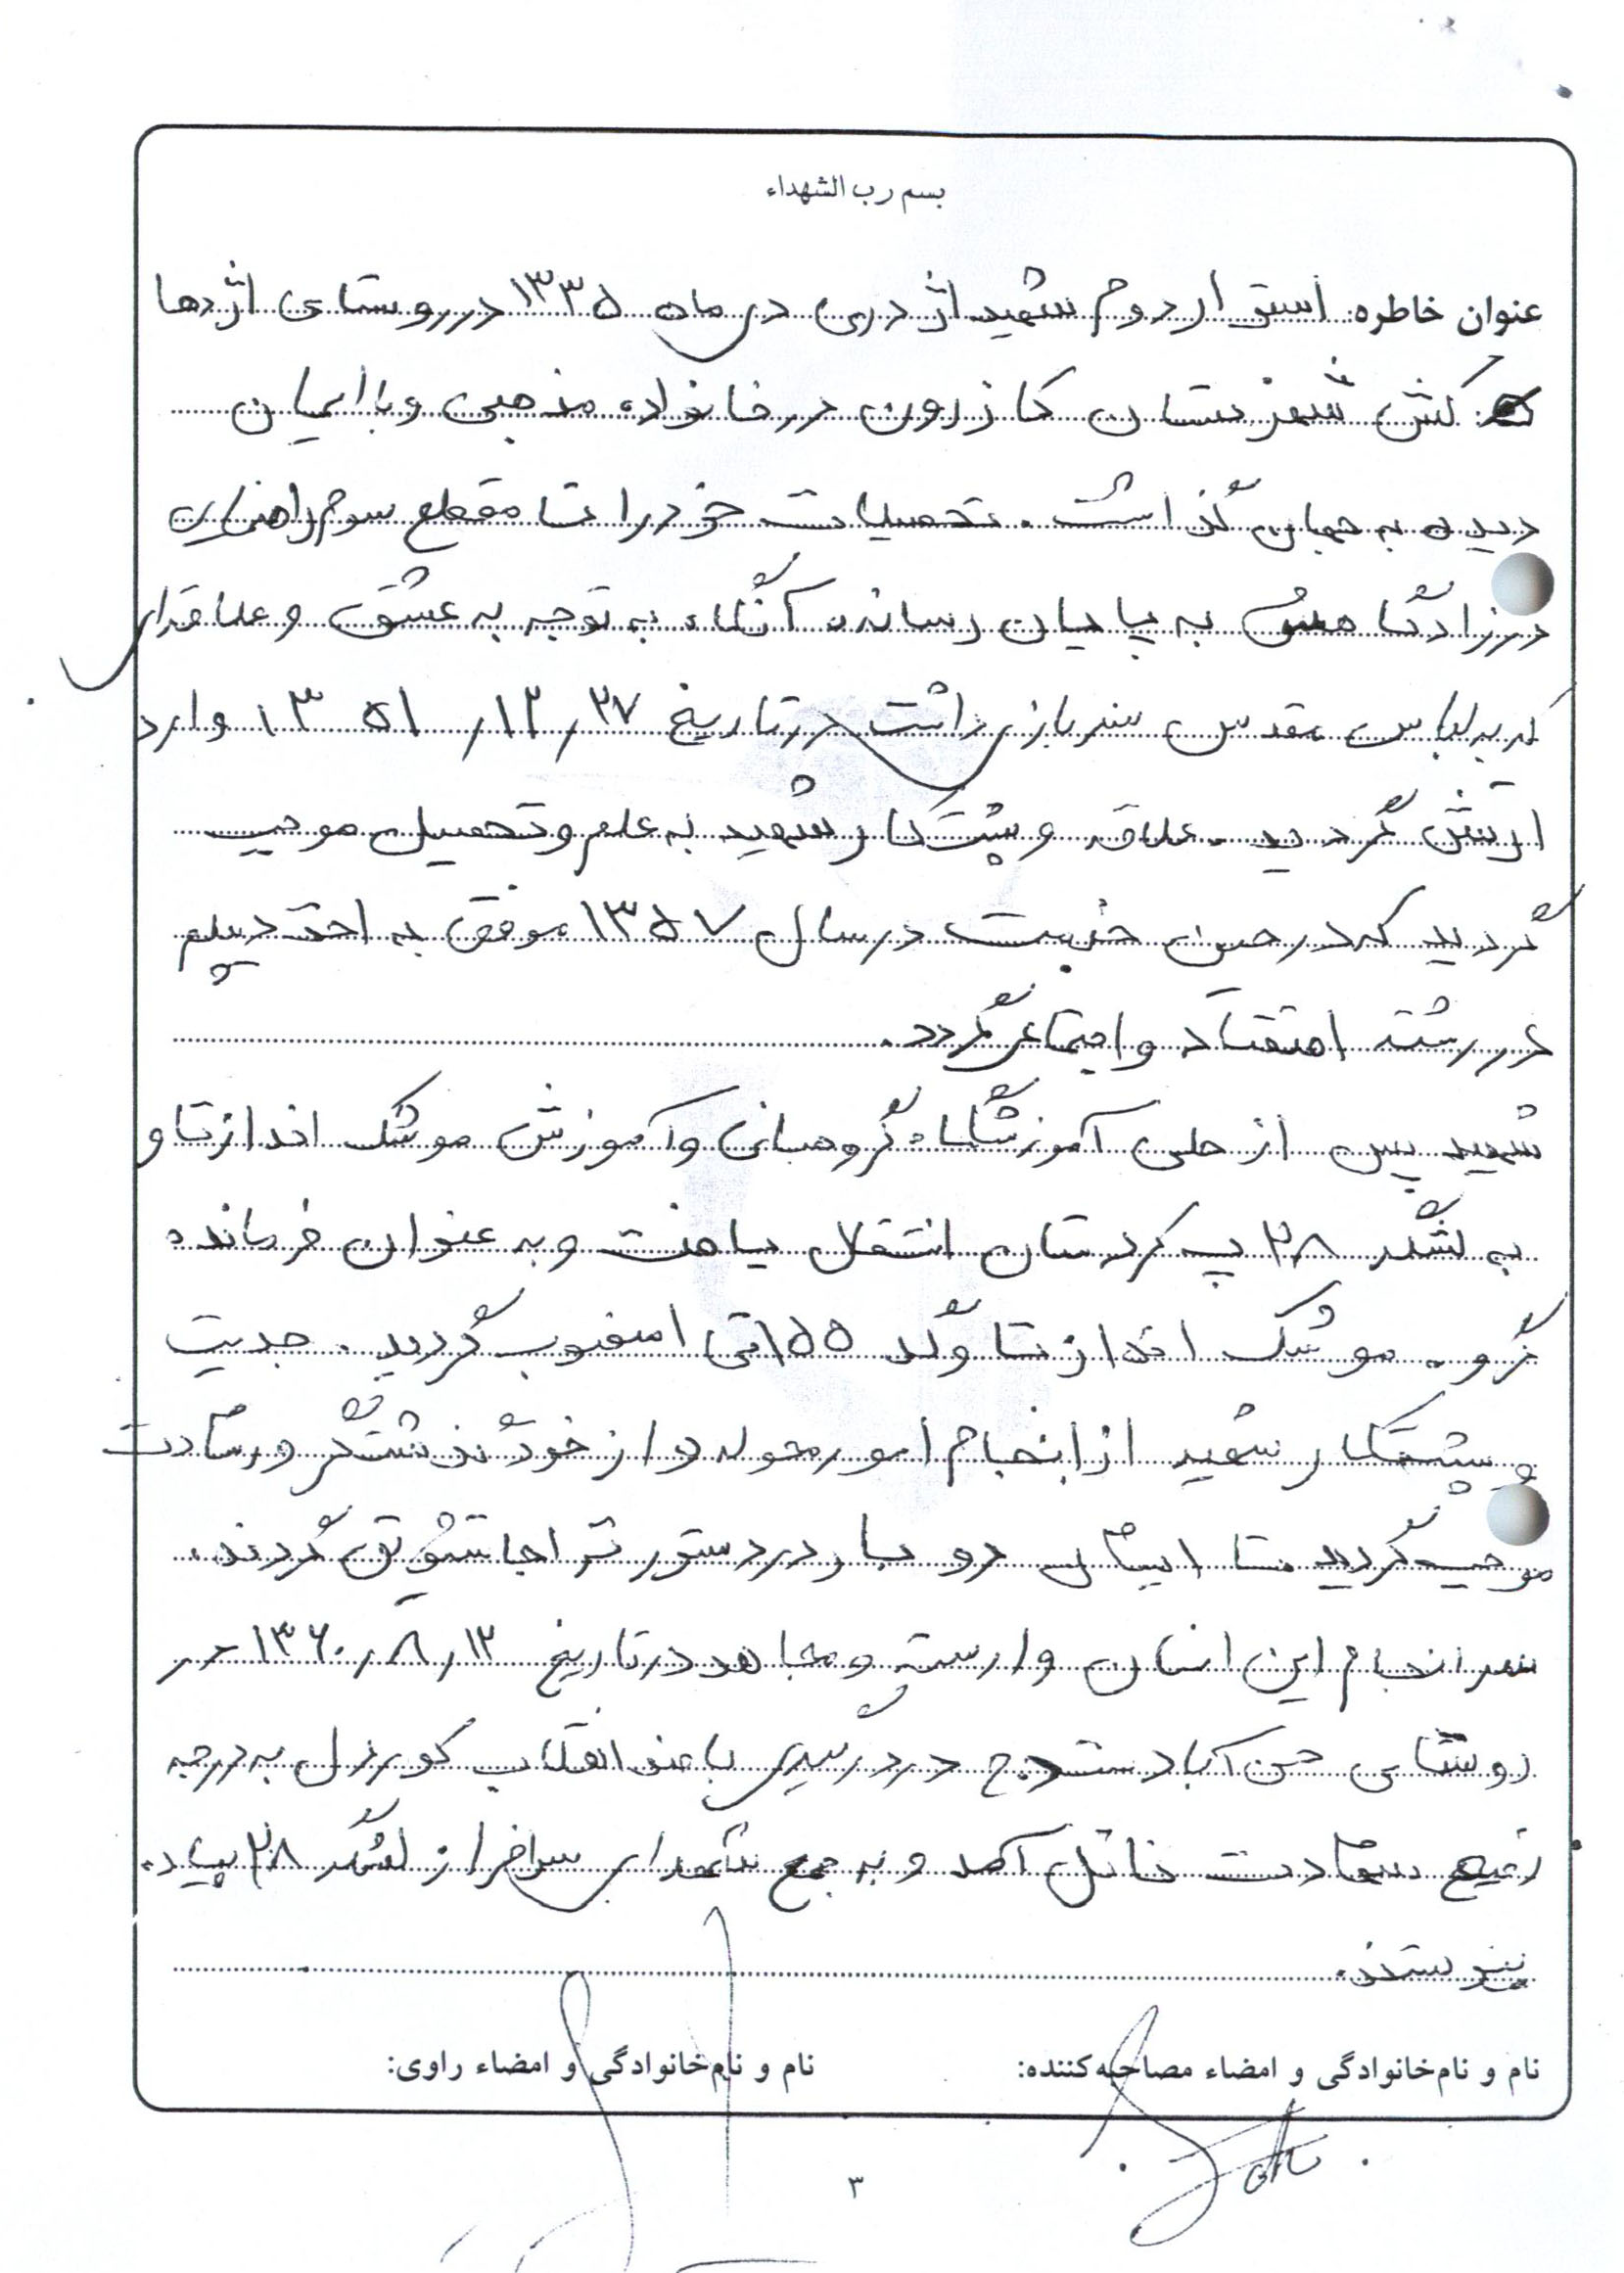 بسم رب الشهداء
عنوان خاطره: استوار دوم شهید اژدری دی ماه ۱۳۳۵ در روستای اژدها
کش شهرستان کازرون در خانواده مذهبی و با ایمان
دیده به جهان گذاشت. تحصیلات خود را تا مقطع سوم راهنمایی
در زادگاهش به پایان رسانده آنگاه به توجه به عشق و علاقه‌ای
که به لباس مقدس سربازی داشت در تاریخ ۲۷/۱۲/۱۳۵۱ وارد
ارتش گردید. علاقه و پشتکار شهید به علم و تحصیل موجب
گردید که در حین خدمت در سال ۱۳۵۷ موفق به اخذ دیپلم
در رشته اقتصاد و اجتماعی گردد.
شهید پس از طی آموزشگاه گروهبانی و آموزش موشک انداز تاو
به لشکر ۲۸ پ کردستان انتقال یافت و به عنوان فرمانده
گروه موشک انداز تاو گد ۱۵۵ تی منصوب گردید. جدیت
و پشتکار شهید از انجام امور محوله و از خود گذشتگی و رشادت
موجب گردید تا ایشان دو بار در دستور تیپ تشویق گردند.
سرانجام این انسان وارسته و مجاهد در تاریخ ۱۲/۸/۱۳۶۰ در
روستای حسن آباد سنندج در درگیری با ضد انقلاب کوردل به درجه
رفیع شهادت نائل آمد و به جمع شهدای سرافراز لشگر ۲۸ پیاده
پیوستند.
نام و نام‌خانوادگی و امضاء مصاحبه‌کننده: نام و نام‌خانوادگی و امضاء راوی:
۳